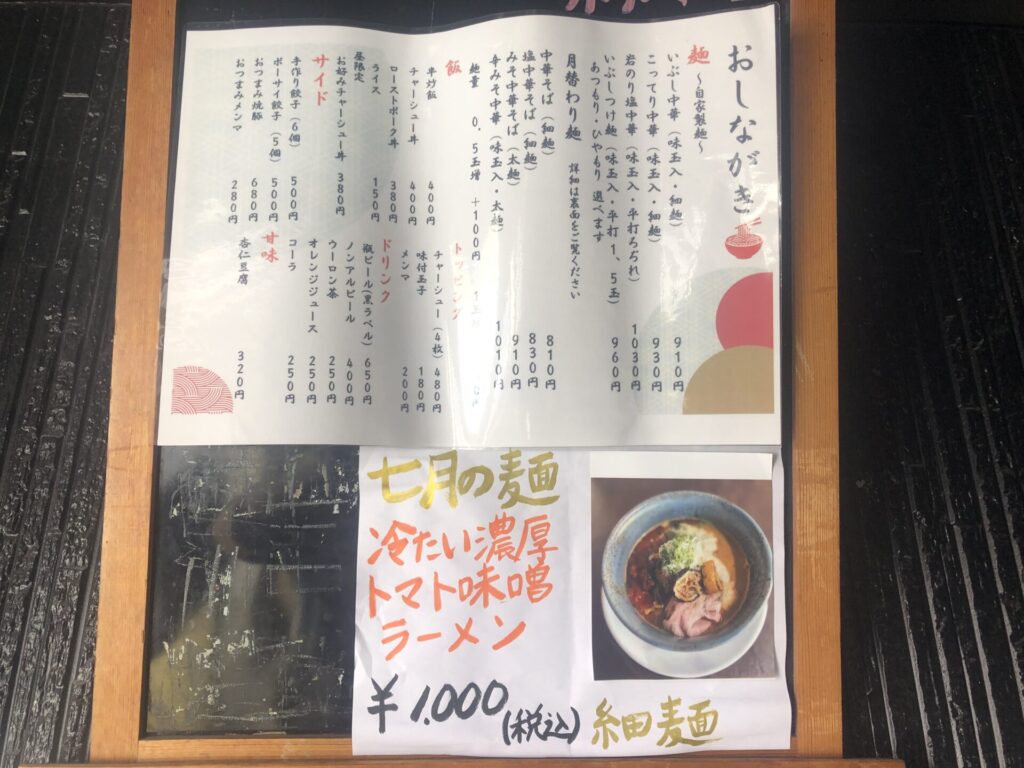 おしながき
麺 〜自家製麺〜
いぶし中華(味玉入・細麺) 910円
こってり中華(味玉入・細麺) 930円
岩のり塩中華(味玉入・平打ちぢれ) 1030円
いぶしつけ麺(味玉入・平打1、5玉) 960円
あつもり・ひやもり 選べます
月替わり麺 詳細は裏面をご覧ください
中華そば(細麺) 810円
塩中華そば(細麺) 830円
みそ中華そば(太麺) 910円
辛みそ中華(味玉入・太麺) 1010円
麺量 0.5玉増 +100円
飯
半炒飯 400円
チャーシュー丼 400円
ローストポーク丼 380円
ライス 150円
昼限定
お好みチャーシュー丼 380円
サイド
手作り餃子(6個) 500円
ポーサイ餃子(5個) 500円
おつまみ焼豚 680円
おつまみメンマ 280円
トッピング
チャーシュー(4枚) 480円
味付玉子 180円
メンマ 200円
ドリンク
瓶ビール(黒ラベル) 650円
ノンアルビール 400円
ウーロン茶 250円
オレンジジュース 250円
コーラ 250円
甘味
杏仁豆腐 320円
七月の麺
冷たい濃厚
トマト味噌
ラーメン
¥1,000(税込)
細麺